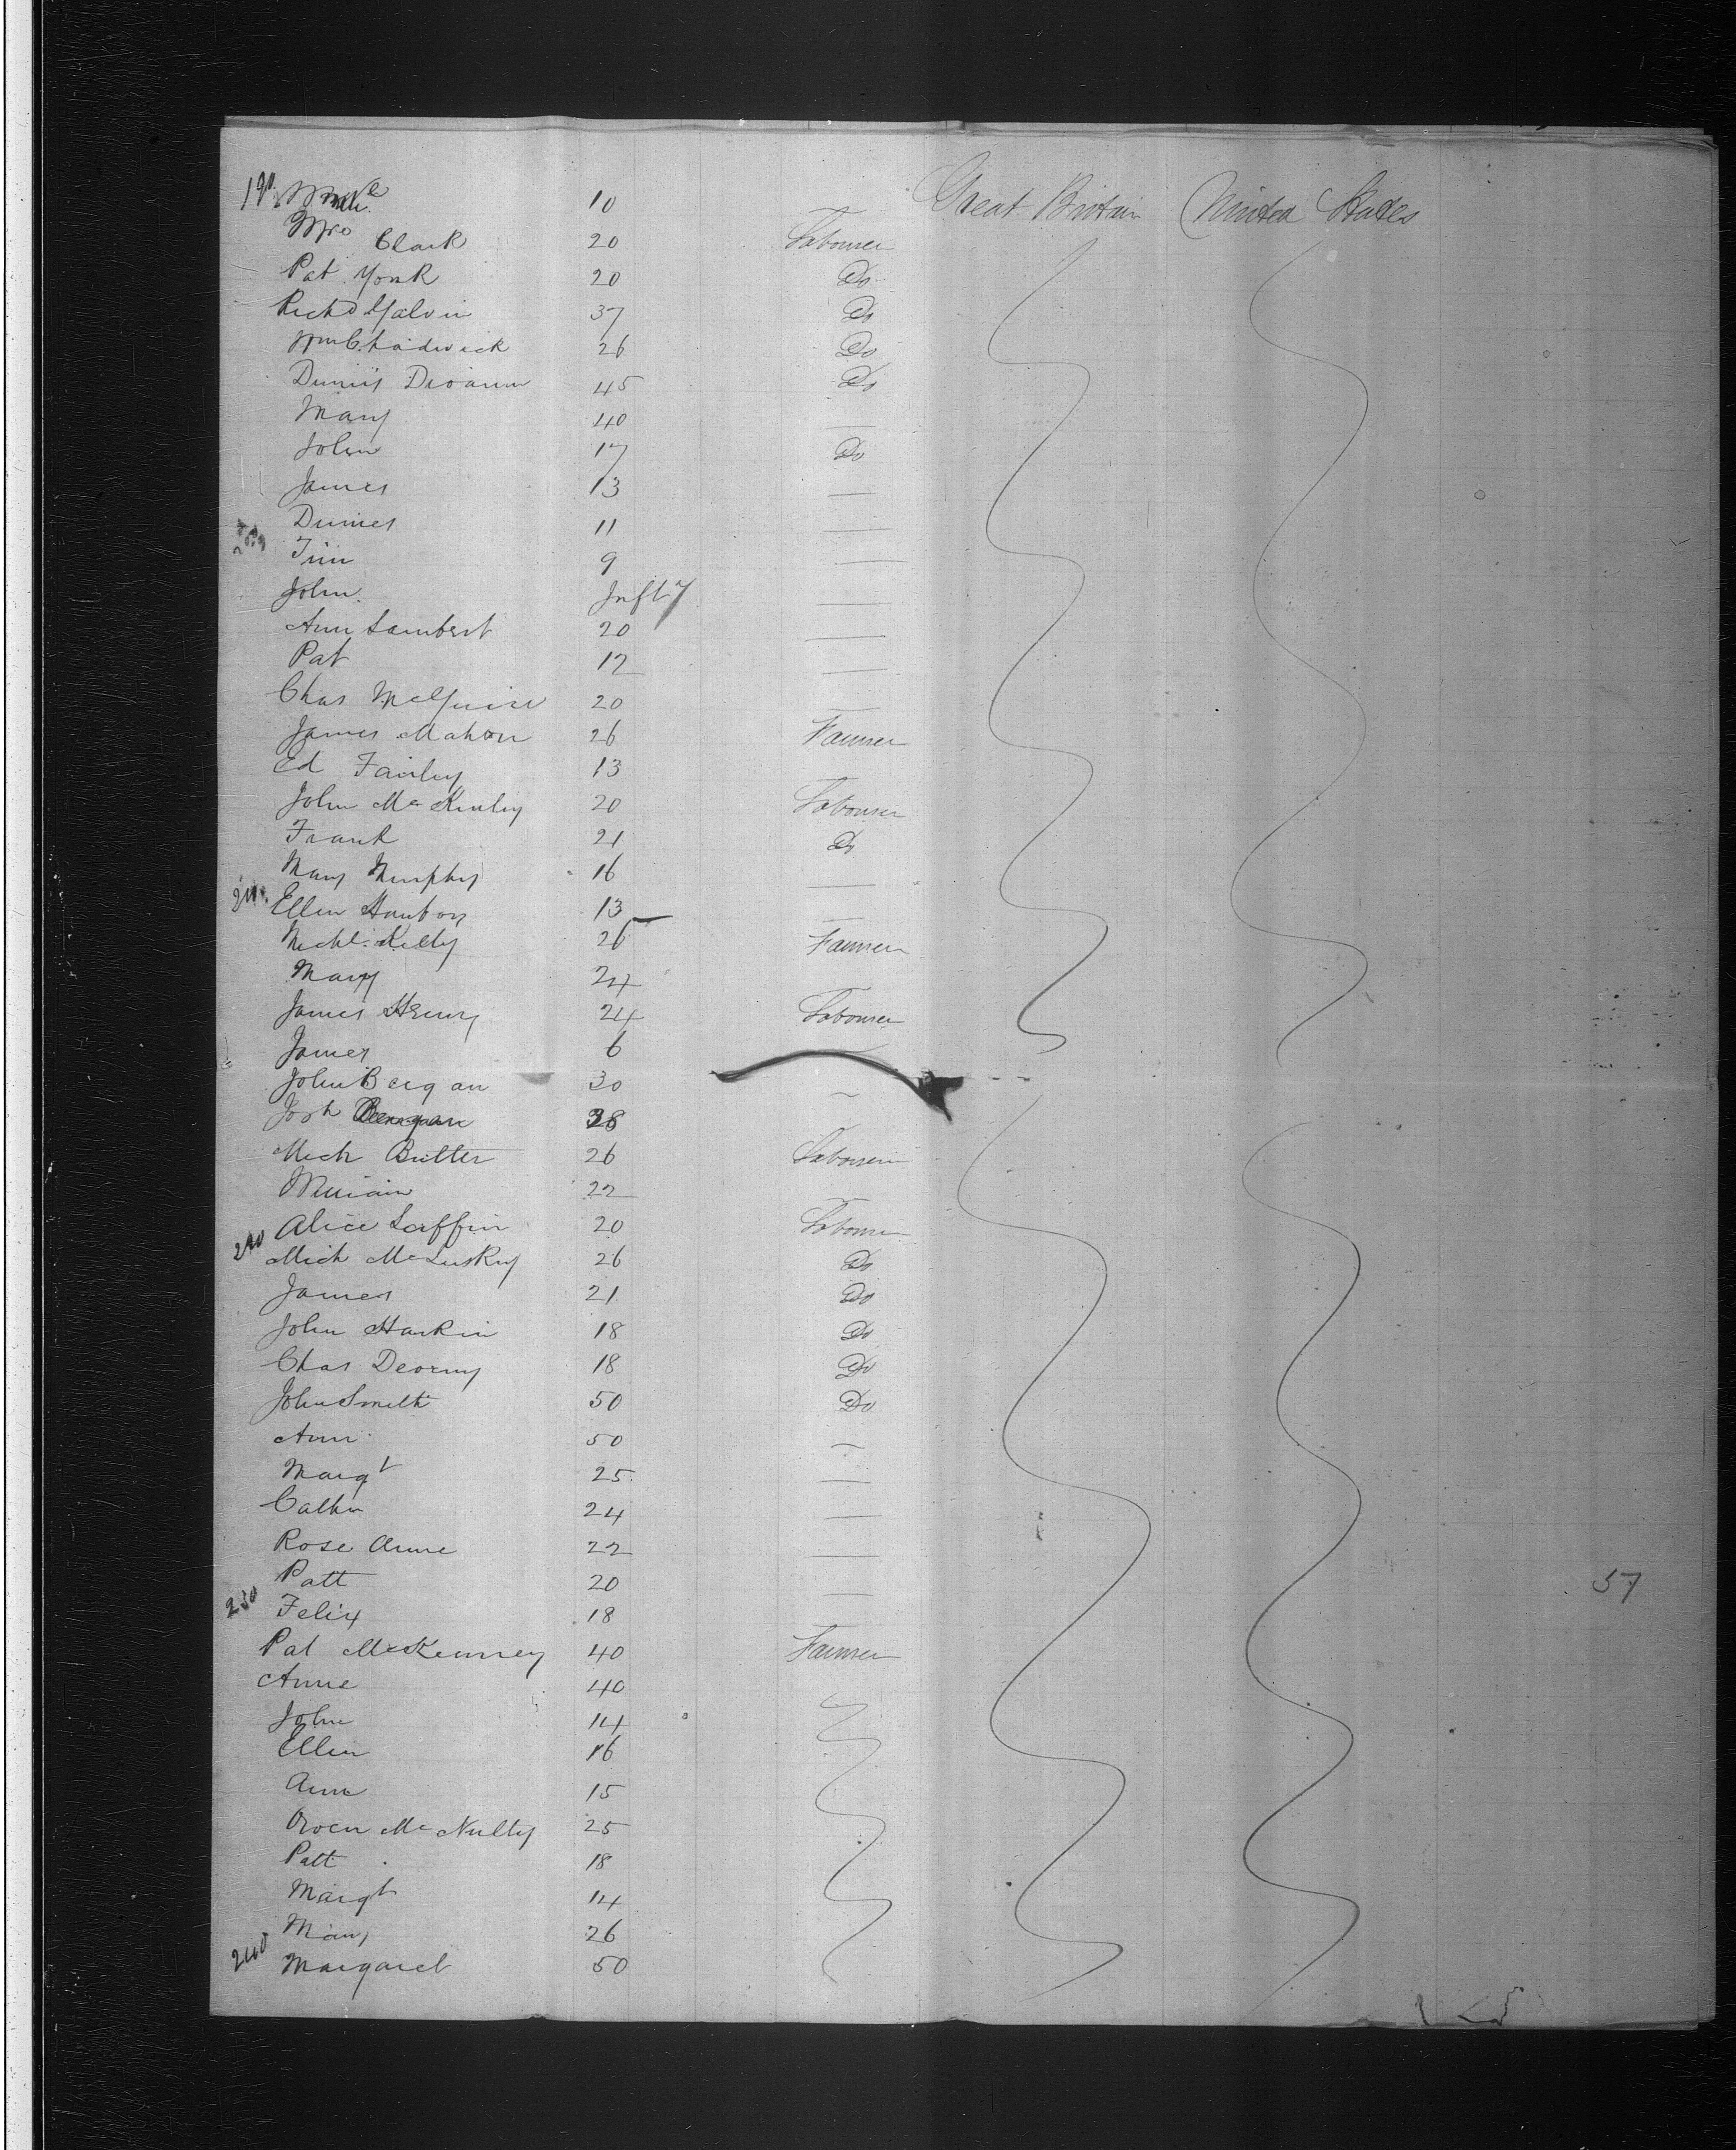 190 10 Great Britain United States
Mrs Clark 20 Labourer
Pat York 20 Do
Richd Galvin 37 Do
Wm Chadwick 26 Do
Dennis 45 Do
Mary 40 —
John 17 Do
James 13 —
Dennis 11 —
Tim 9 —
John Inft —
Ann Lambert 20 —
Pat 12 —
Chas McGuire 20 —
James Mahon 26 Farmer
Ed Fairley 13
John Mc Kinley 20 Labourer
Frank 21 Do
Mary Murphy 16 —
Ellen 13 —
Michl. Kelly 26 Farmer
Mary 24
James Henry 24 Labourer
James 6 —
John Bergan 30 —
Josh Bengan 28
Mich Butter 26 Labourer
22 —
Alice Laffin 20 Labourer
220 Mich Mc Luskey 26 Do
James 21 Do
John Harkin 18 Do
Chas 18 Do
John Smith 50 Do
Ann 50 —
Margt 25 —
Cathn 24 —
Rose Anne 22 —
Patt 20 — 57
230 Felix 18
Pat McKenney 40 Farmer
Anne 40
John 14
Ellen 16
Ann 15
Owen Mc Nulty 25
Patt 18
Margt 14
Mary 26
240 Margaret 50